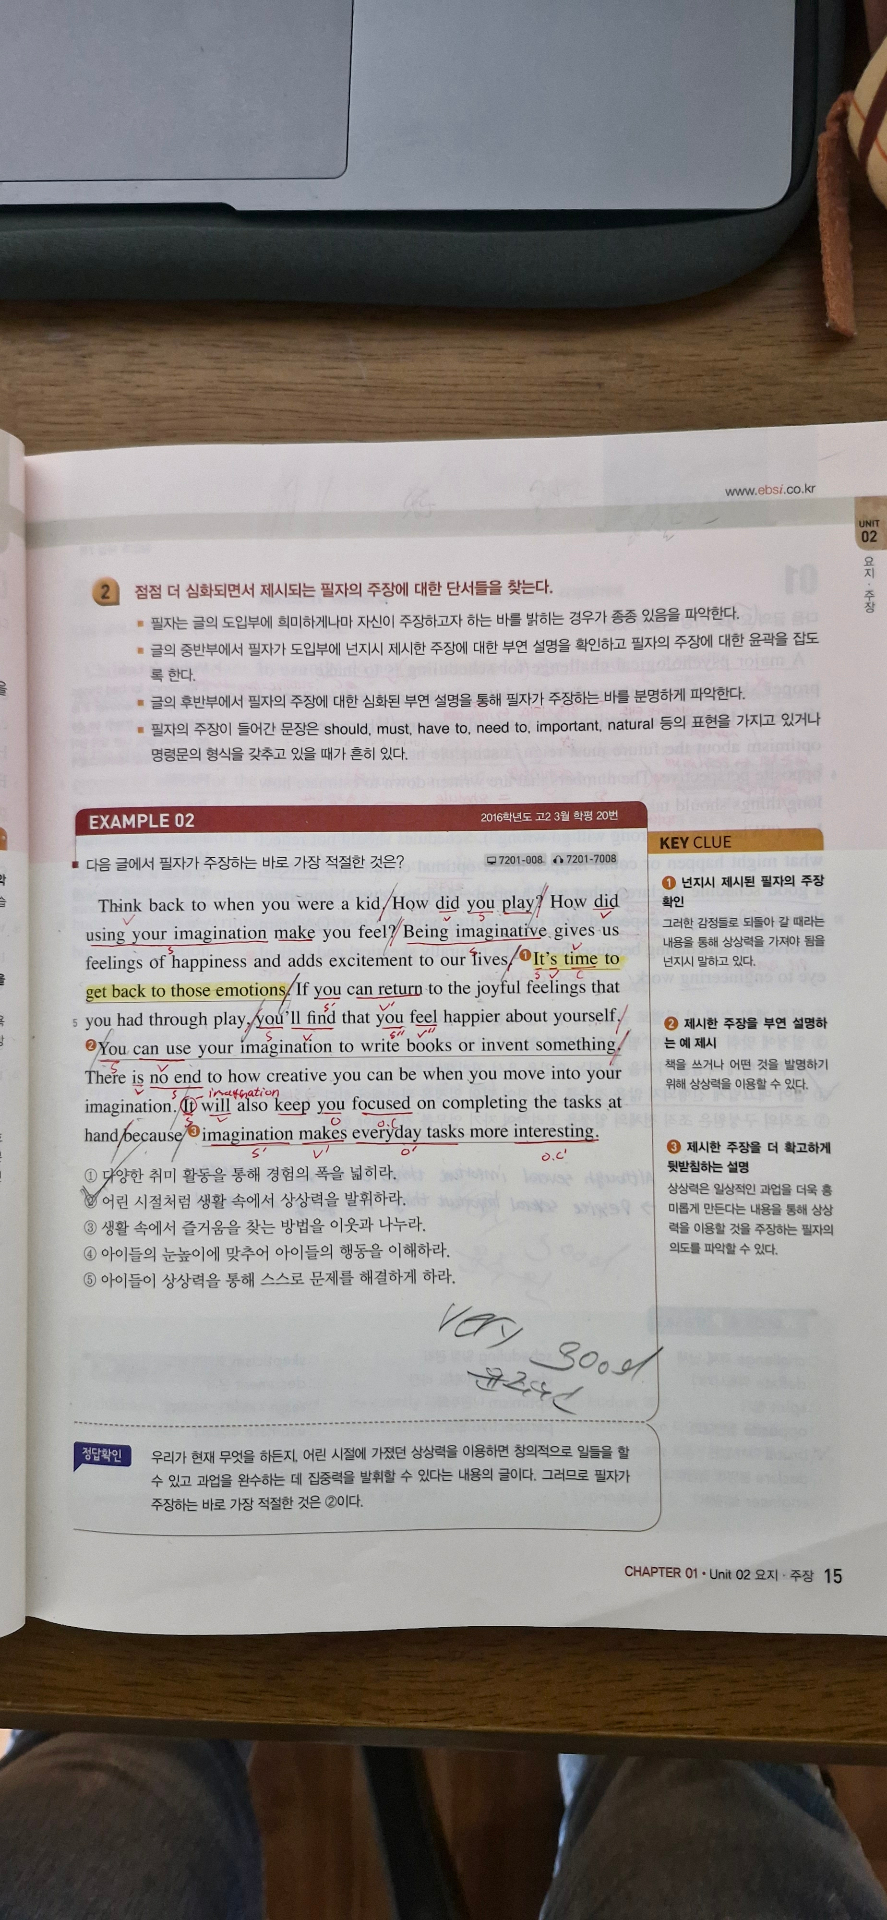 www.ebsi.co.kr
UNIT
02
요지·주장
2 점점 더 심화되면서 제시되는 필자의 주장에 대한 단서들을 찾는다.
▪ 필자는 글의 도입부에 희미하게나마 자신이 주장하고자 하는 바를 밝히는 경우가 종종 있음을 파악한다.
▪ 글의 중반부에서 필자가 도입부에 넌지시 제시한 주장에 대한 부연 설명을 확인하고 필자의 주장에 대한 윤곽을 잡도
록 한다.
▪ 글의 후반부에서 필자의 주장에 대한 심화된 부연 설명을 통해 필자가 주장하는 바를 분명하게 파악한다.
▪ 필자의 주장이 들어간 문장은 should, must, have to, need to, important, natural 등의 표현을 가지고 있거나
명령문의 형식을 갖추고 있을 때가 흔히 있다.
EXAMPLE 02 2016학년도 고2 3월 학평 20번
▪ 다음 글에서 필자가 주장하는 바로 가장 적절한 것은? 7201-008 7201-7008
Think back to when you were a kid. How did you play? How did
using your imagination make you feel? Being imaginative gives us
feelings of happiness and adds excitement to our lives. ❶It's time to
get back to those emotions. If you can return to the joyful feelings that
5 you had through play, you'll find that you feel happier about yourself.
❷You can use your imagination to write books or invent something.
There is no end to how creative you can be when you move into your
imagination. It will also keep you focused on completing the tasks at
hand because ❸imagination makes everyday tasks more interesting.
① 다양한 취미 활동을 통해 경험의 폭을 넓히라.
② 어린 시절처럼 생활 속에서 상상력을 발휘하라.
③ 생활 속에서 즐거움을 찾는 방법을 이웃과 나누라.
④ 아이들의 눈높이에 맞추어 아이들의 행동을 이해하라.
⑤ 아이들이 상상력을 통해 스스로 문제를 해결하게 하라.
very good
KEY CLUE
❶ 넌지시 제시된 필자의 주장
확인
그러한 감정들로 되돌아 갈 때라는
내용을 통해 상상력을 가져야 됨을
넌지시 말하고 있다.
❷ 제시한 주장을 부연 설명하
는 예 제시
책을 쓰거나 어떤 것을 발명하기
위해 상상력을 이용할 수 있다.
❸ 제시한 주장을 더 확고하게
뒷받침하는 설명
상상력은 일상적인 과업을 더욱 흥
미롭게 만든다는 내용을 통해 상상
력을 이용할 것을 주장하는 필자의
의도를 파악할 수 있다.
정답확인
우리가 현재 무엇을 하든지, 어린 시절에 가졌던 상상력을 이용하면 창의적으로 일들을 할
수 있고 과업을 완수하는 데 집중력을 발휘할 수 있다는 내용의 글이다. 그러므로 필자가
주장하는 바로 가장 적절한 것은 ②이다.
CHAPTER 01 • Unit 02 요지·주장 15